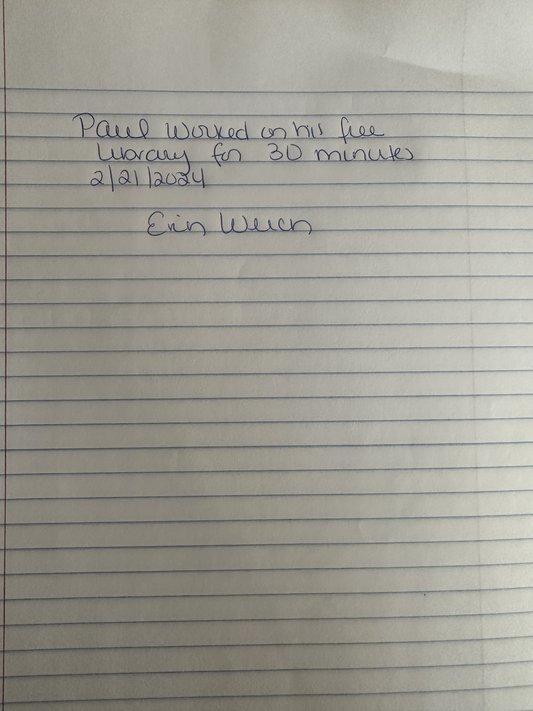 Paul worked on his free
library for 30 minutes
2/21/2024
Erin